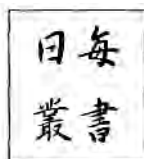 每日
叢書